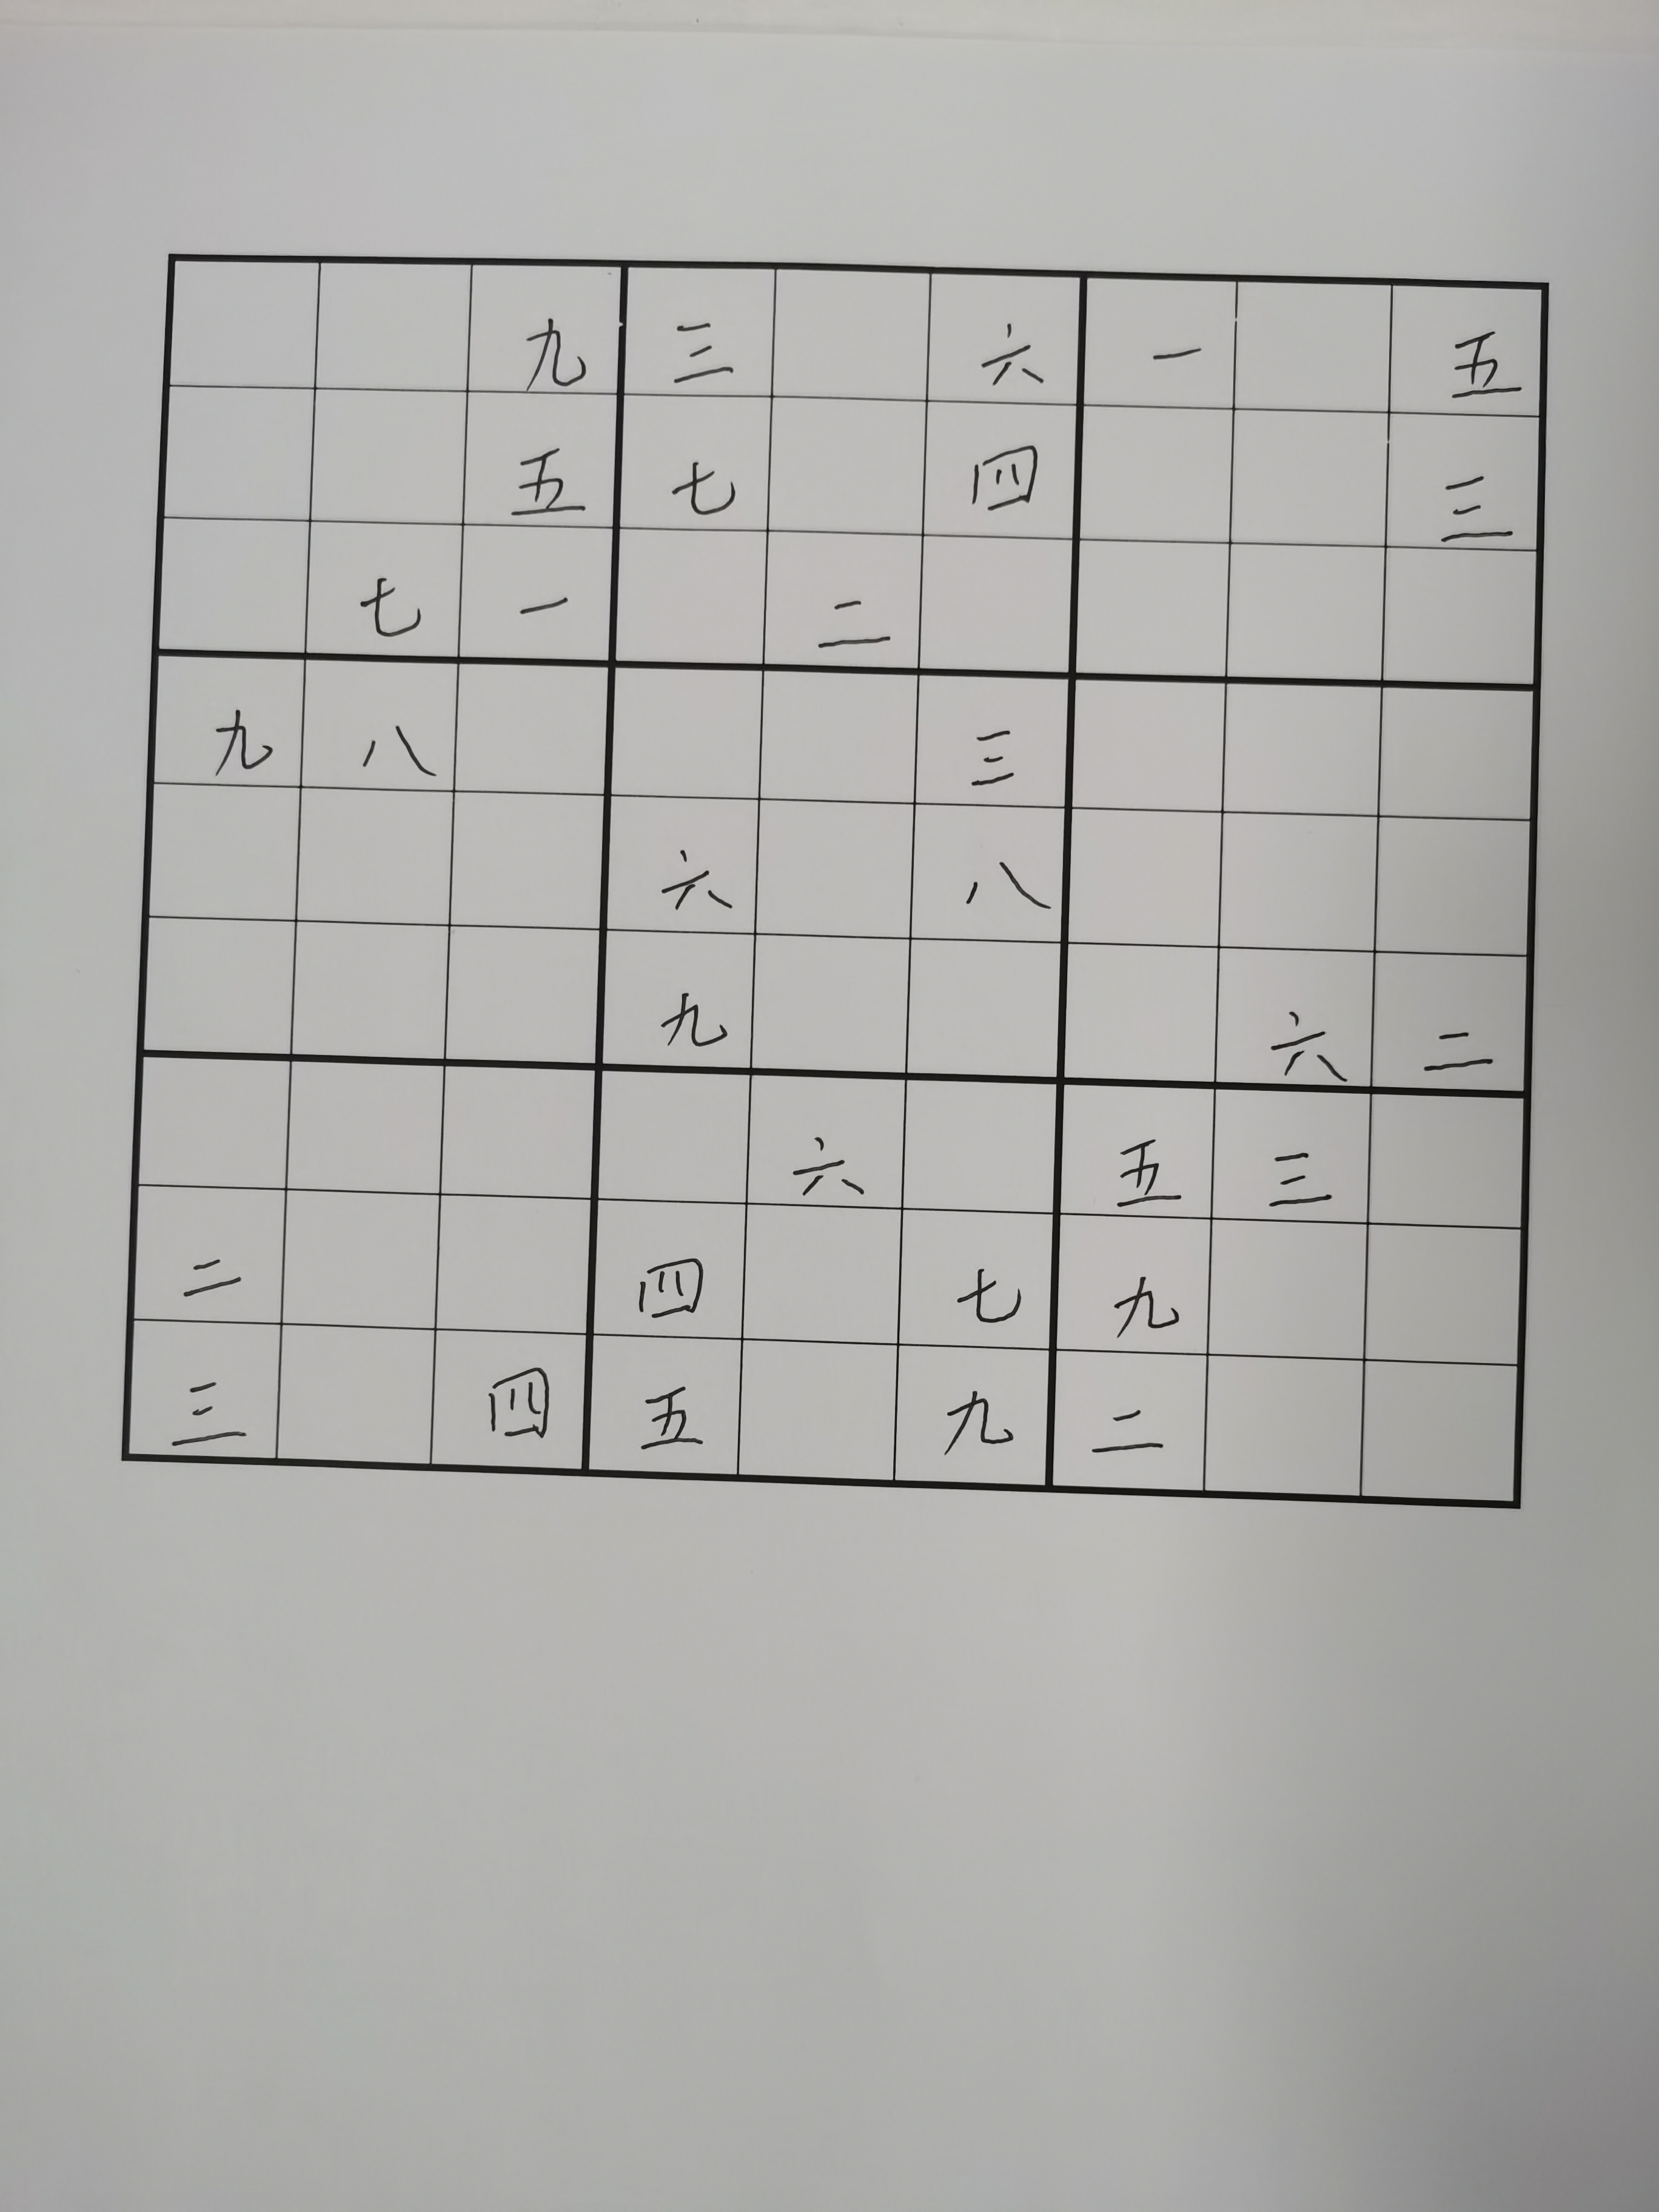 九 三 六 一 五
五 七 四 三
七 一 二
九 八 三
六 八
九 六 二
六 五 三
二 四 七 九
三 四 五 九 二